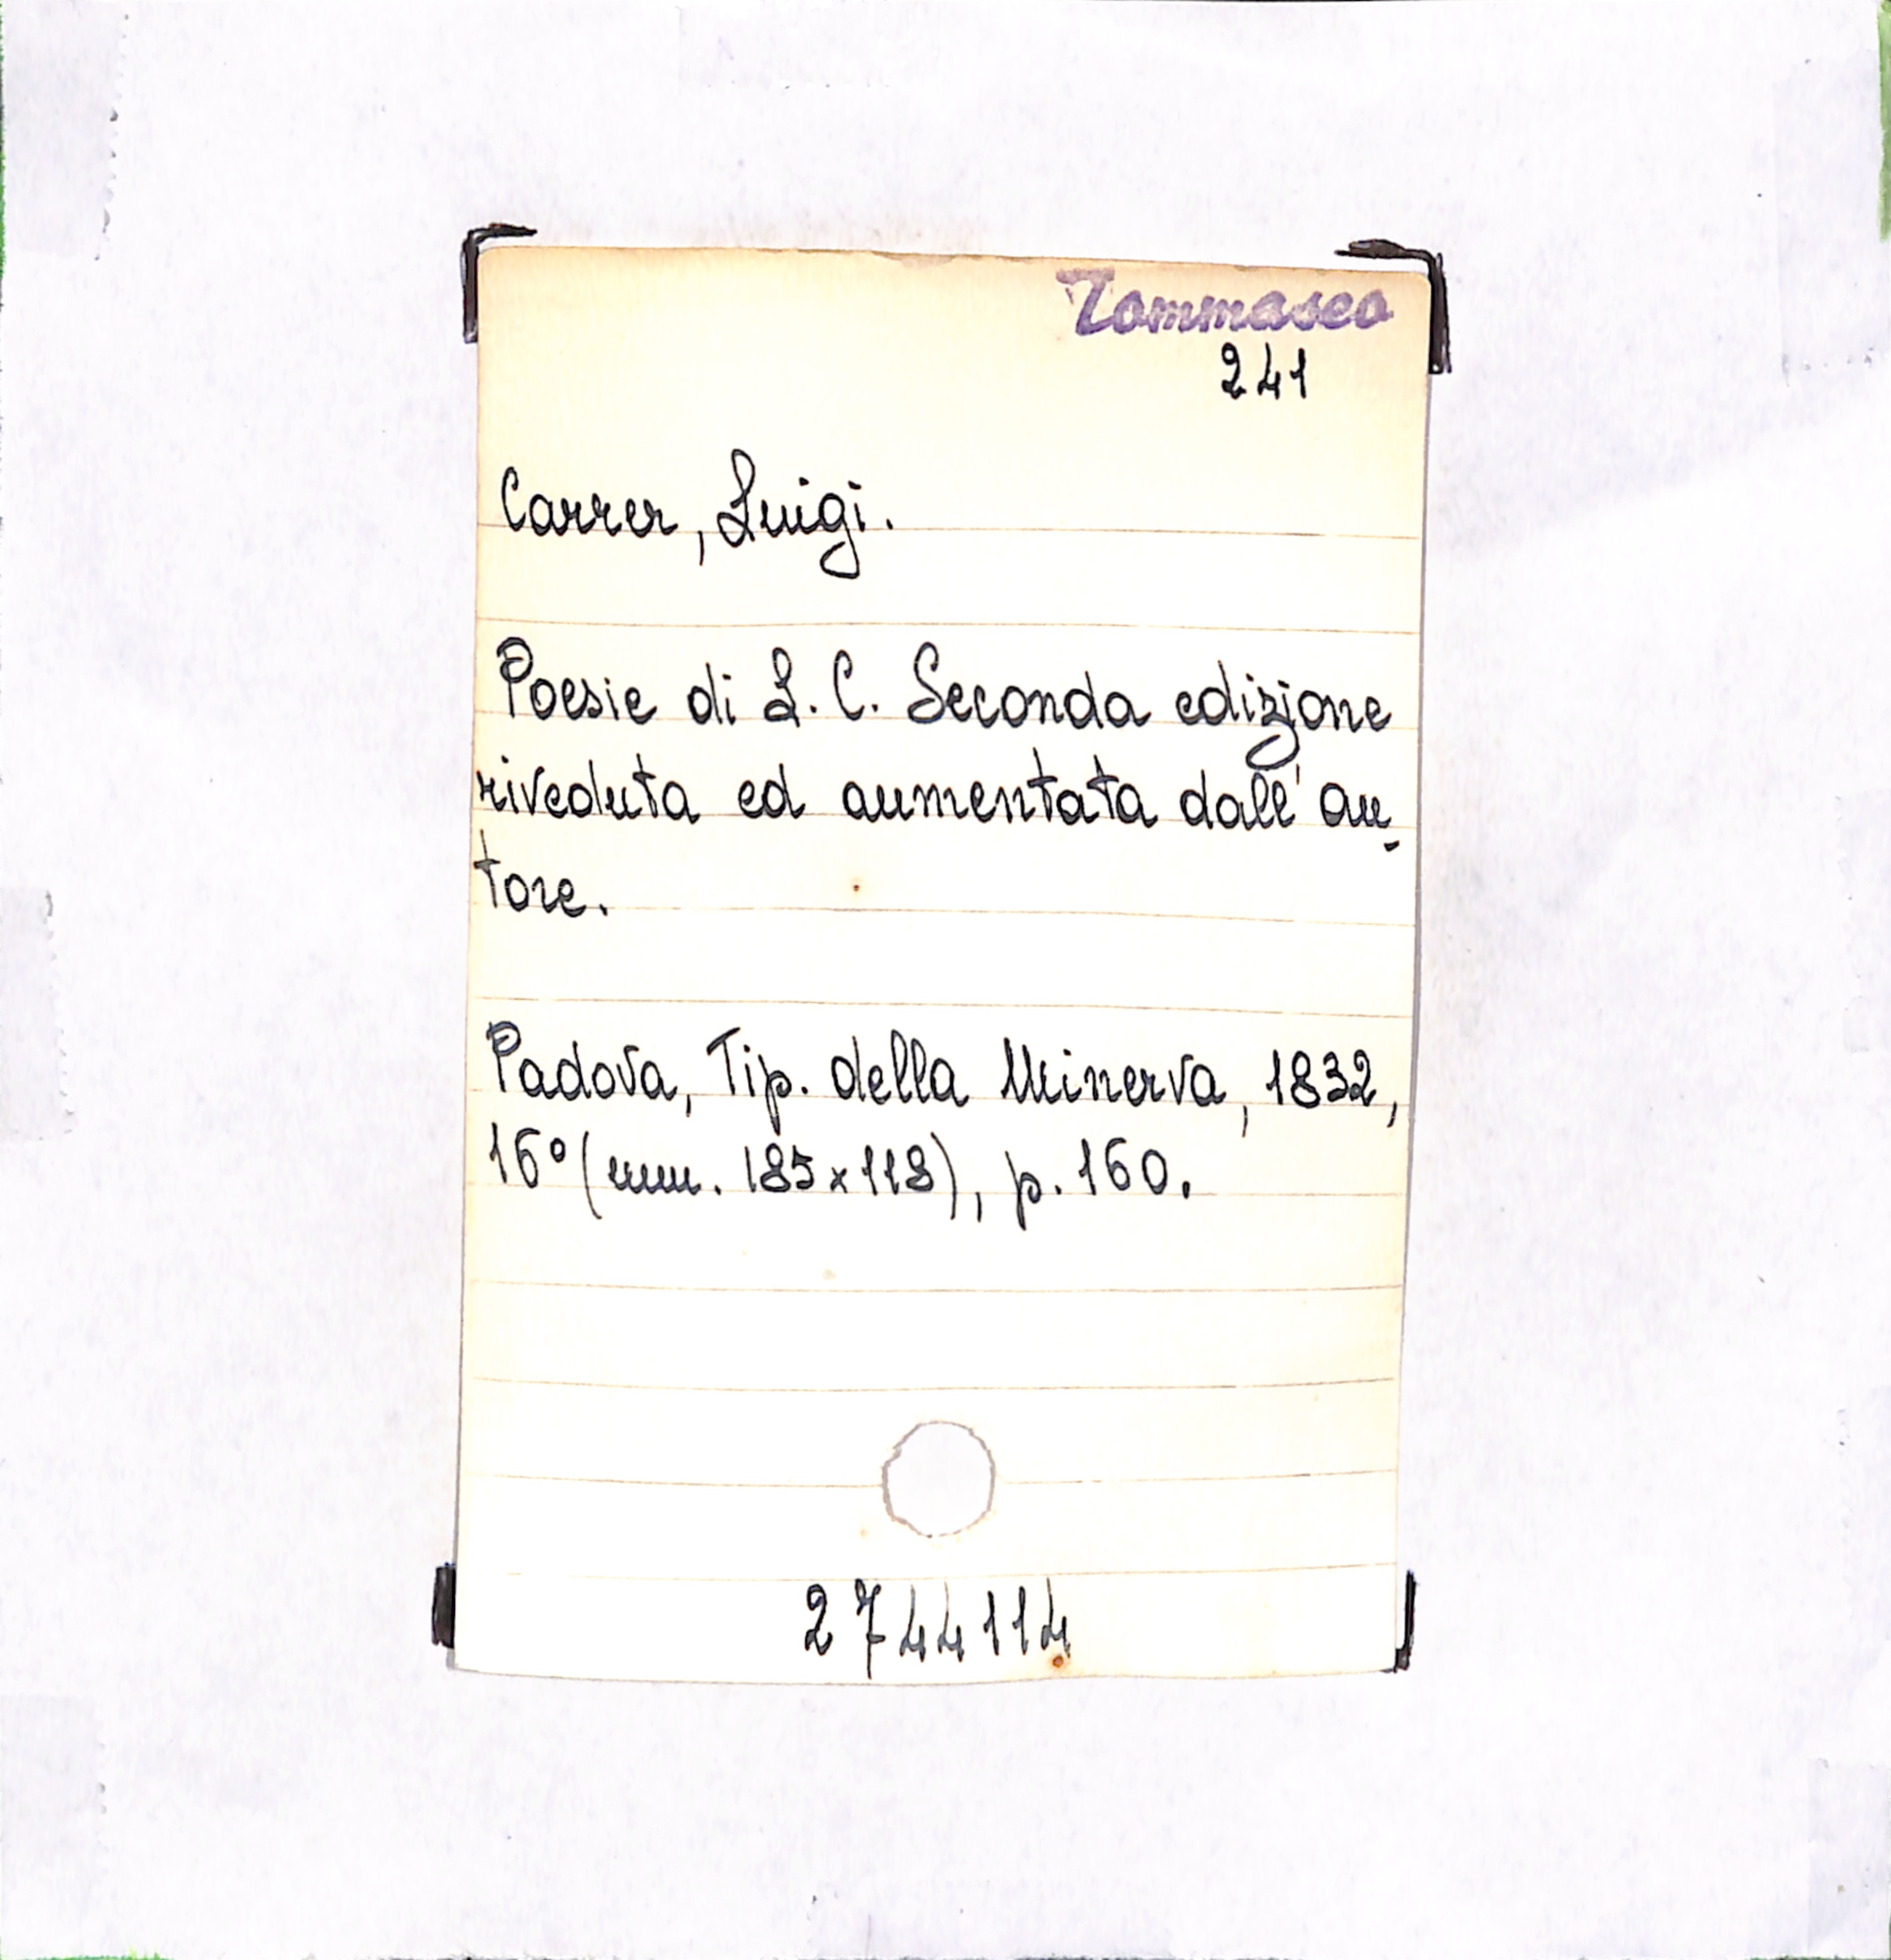 Tommaseo
241
Carrer, Luigi.
Poesie di L. C. Seconda edizione
riveduta ed aumentata dall'au-
tore.
Padova, Tip. della Minerva, 1832,
16° (mm. 185x118), p. 160.
2744114